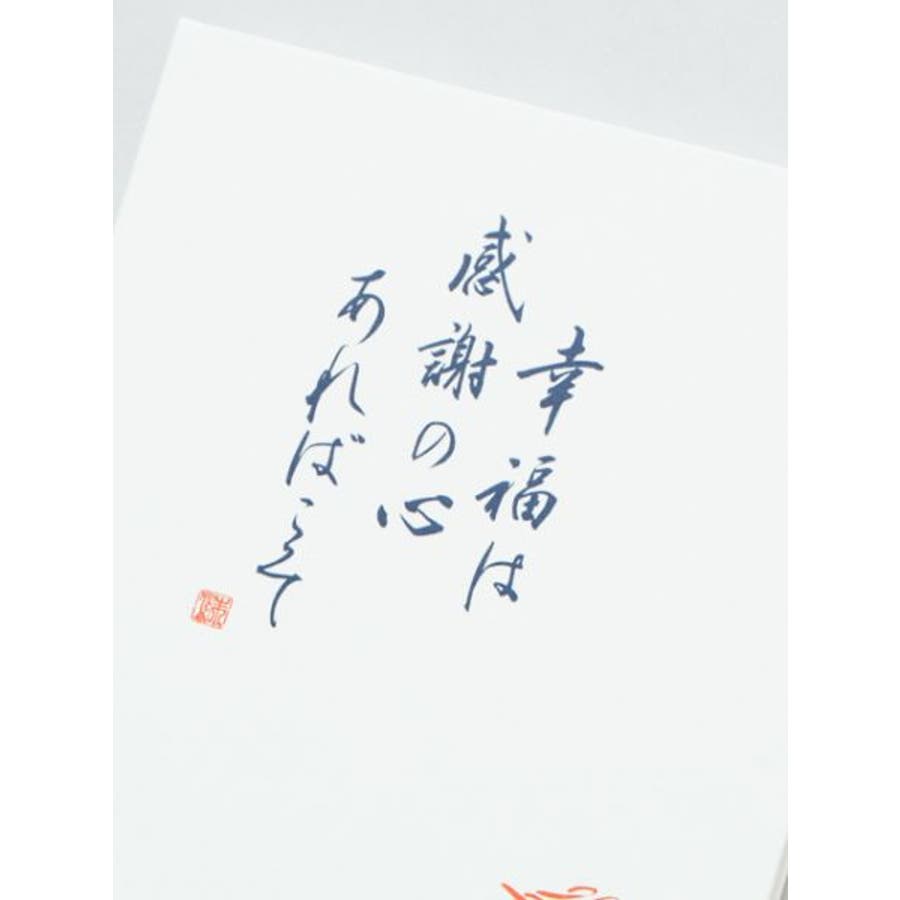 幸福は
感謝の心
あればこそ